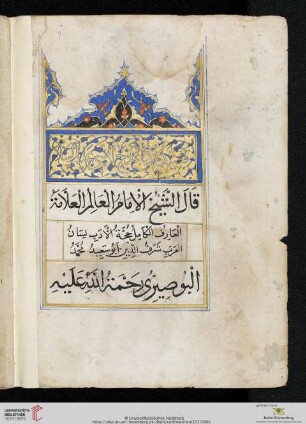 قال الشيخ الإمام العالم العلامة
العارف الكامل حجة الأدب لسان
العرب شرف الدين أبو سعيد محمد
البوصيري رحمة الله عليه
UNIVERSITÄTS-
BIBLIOTHEK
HEIDELBERG
© Universitätsbibliothek Heidelberg
Baden-Württemberg